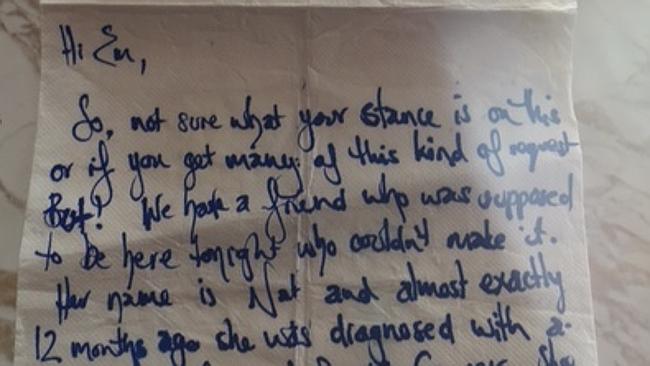 Hi Em,
So, not sure what your stance is on this
or if you get many of this kind of request
But! We have a friend who was supposed
to be here tonight who couldn't make it.
Her name is Nat and almost exactly
12 months ago she was diagnosed with a
She